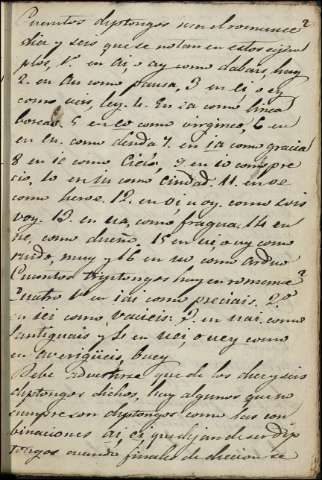 Cuantos diptongos usa el romance?
diez y seis que se notan en estos ejem
plos, 1º en ai, o ay como dabais, hay
2. en au como pausa, 3 en ei, o ey
como veis, ley. 4. En ea como linea
boreas. 5 en eo como virgineo, 6 en
en eu. como deuda 7. en ia como gracia
8 en ie como cielo, 9 en io como pre
cio, 10 en iu como Ciudad. 11. en oe
como heroe. 12. en oi u oy. como sois
voy. 13. en ua, como fragua. 14 en
ue, como dueño. 15 en ui, o uy como
ruido, muy y 16 en uo como arduo
Cuantos triptongos hay en romance?
Cuatro 1º en iai como preciais. 2º
en iei como vacieis. 3º en uai. como
santiguais y 4 en uei o uey como
en averigüeis, buey
Debe advertirse que de los diez y seis
diptongos dichos, hay algunos que no
siempre son diptongos como las com
binaciones ai, ei que dejan de ser dip
tongos cuando finales de diccion se